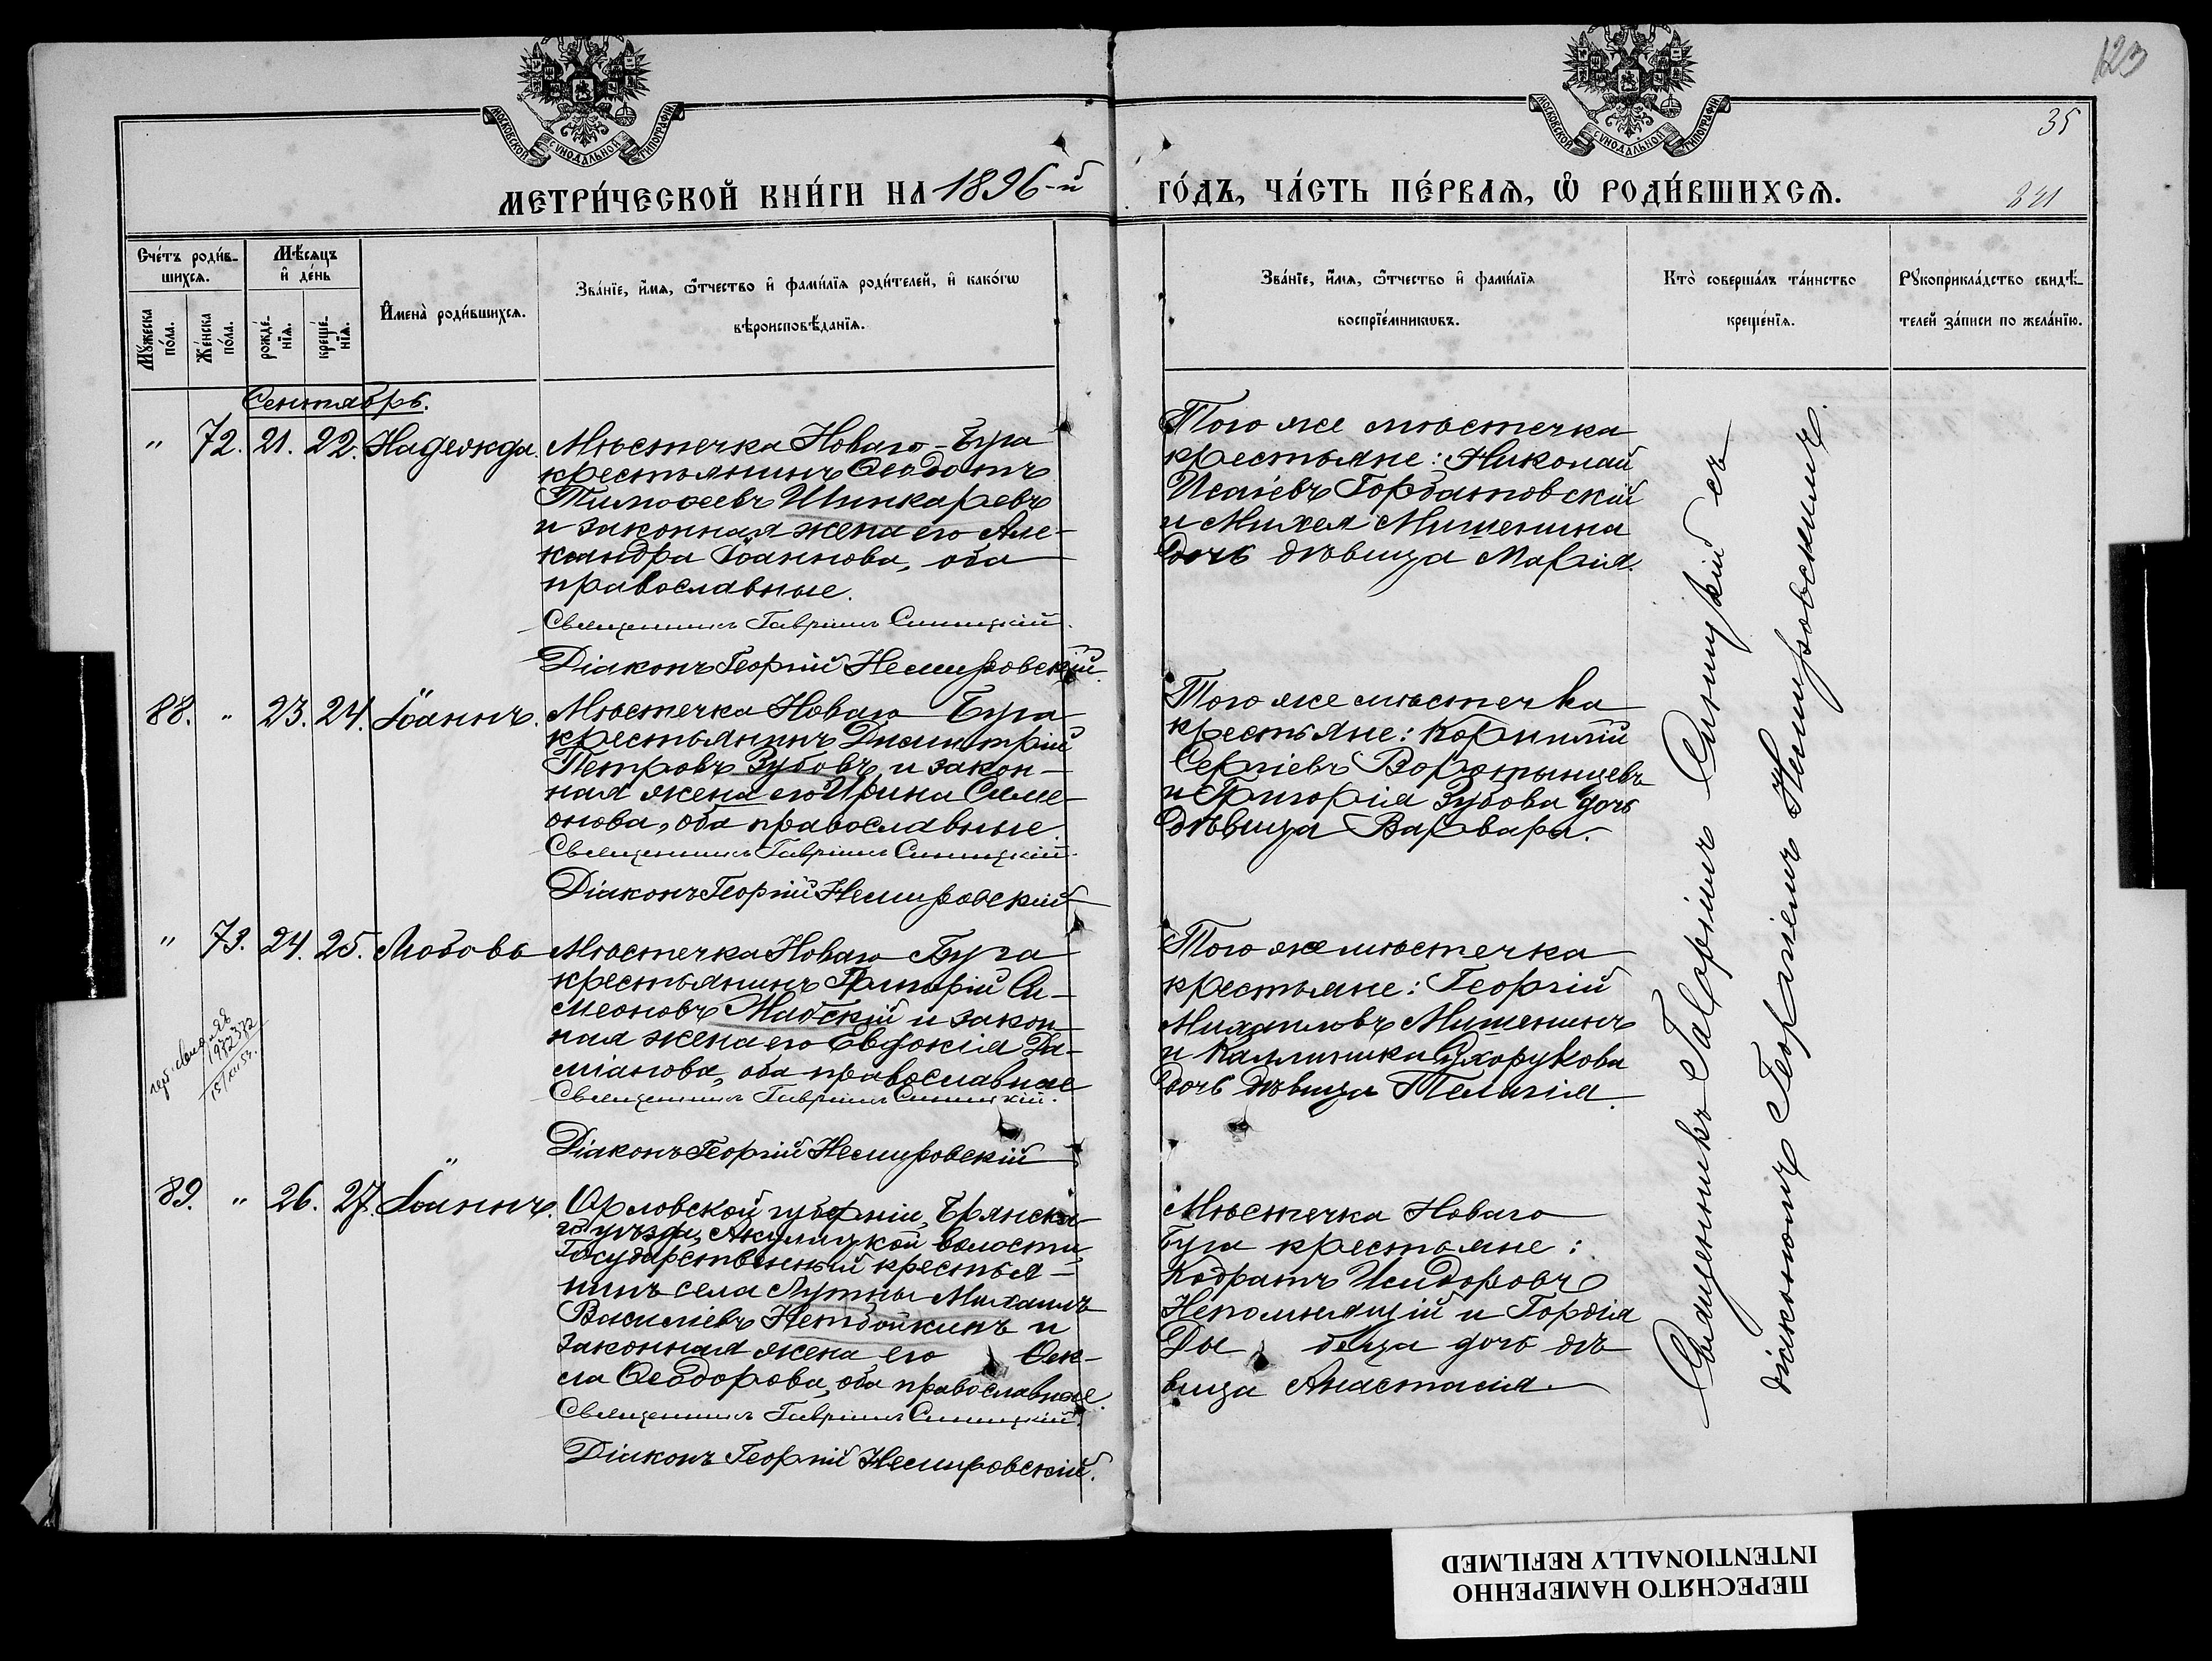 123
35
МОСКОВСКОЙ СѴНОДАЛЬНОЙ ТИПОГРАФІИ
МОСКОВСКОЙ СѴНОДАЛЬНОЙ ТИПОГРАФІИ
МЕТРИ́ЧЕСКОЙ КНИ́ГИ НА 1896-й ГО́ДЪ, ЧА́СТЬ ПЕ́РВАѦ, Ѡ҆ РОДИ́ВШИХСѦ.
Сче́тъ роди́в-
шихсѧ.
Мѹ́жеска по́ла.
Же́нска по́ла.
Мѣ́сѧцъ
и҆ де́нь
рожде́-
нїѧ.
креще́-
нїѧ.
И҆мена̀ роди́вшихсѧ.
Зва́нїе, и҆́мѧ, ѻ҆́тчество и҆ фами́лїѧ роди́телей, и҆ како́гѡ
вѣроисповѣ́данїѧ.
Зва́нїе, и҆́мѧ, ѻ҆́тчество и҆ фами́лїѧ
воспрїе́мникѡвъ.
Кто̀ соверша́лъ та́инство
креще́нїѧ.
Рѹкоприкла́дство свидѣ́-
телей за́писи по жела́нїю.
Сентябрь.
" 72. 21. 22. Надежда.
Мѣстечка Новаго-Буга
крестьянинъ Ѳеодотъ
Тимоѳеевъ Шинкаревъ
и законная жена его Але-
ксандра Іоаннова, оба
православные.
Священникъ Гавріилъ Синицкій.
Діаконъ Георгій Немировскій.
Того же мѣстечка
крестьяне: Николай
Исаіевъ Горбатовскій
и Михея Мишенина
дочь дѣвица Марія.
88. " 23. 24. Іоаннъ.
Мѣстечка Новаго Буга
крестьянинъ Димитрій
Петровъ Зубовъ и закон-
ная жена его Ирина Симе-
онова, оба православные.
Священникъ Гавріилъ Синицкій.
Діаконъ Георгій Немировскій
Того же мѣстечка
крестьяне: Корнилій
Сергіевъ Воротынцевъ
и Григорія Зубова дочь
дѣвица Варвара.
" 73. 24. 25. Любовь
Мѣстечка Новаго Буга
крестьянинъ Григорій Си-
меоновъ Майскій и закон-
ная жена его Евдокія Да-
міанова, оба православные
Священникъ Гавріилъ Синицкій.
Діаконъ Георгій Немировскій
Того же мѣстечка
крестьяне: Георгій
Михаиловъ Мишенинъ
и Каллиника Сухорукова
дочь дѣвица Пелагія.
89. " 26. 27. Іоаннъ.
Орловской губерніи, Брянска-
го уѣзда, Акулицкой волости,
Государственный крестья-
нинъ села Лутны Михаилъ
Василіевъ Нетбойкинъ и
законная жена его Ѳек-
ла Ѳеодорова, оба православные.
Священникъ Гавріилъ Синицкій.
Діаконъ Георгій Немировскій.
Мѣстечка Новаго
Буга крестьяне:
Кодратъ Исидоровъ
Непомнящій и Гордія
дочь дѣ-
вица Анастасія.
Священникъ Гавріилъ Синицкій съ
діакономъ Георгіемъ Немировскимъ.
ПЕРЕСНЯТО НАМЕРЕННО
INTENTIONALLY REFILMED